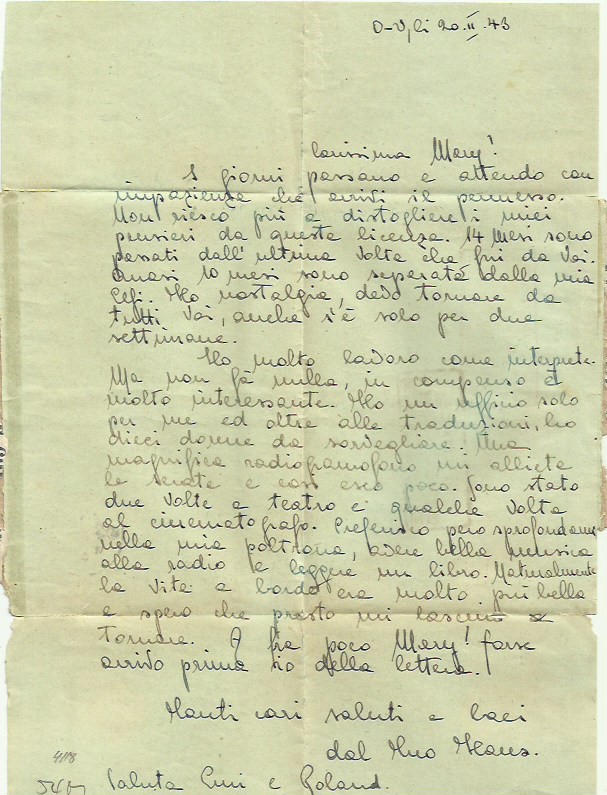 O-U, li 20.II.43
Carissima Mary!
I giorni passano e attendo con
impazienza che arrivi il permesso.
Non riesco più a distogliere i miei
pensieri da questa licenza. 14 mesi sono
passati dall'ultima volta che fui da Voi.
Quasi 10 mesi sono separata dalla mia
Ho nostalgia, devo tornare da
tutti Voi, anche s'è solo per due
settimane.
Ho molto lavoro come interprete.
Ma non fà nulla, in compenso è
molto interessante. Ho un ufficio solo
per me ed oltre alle traduzioni, ho
dieci donne da sorvegliare. Una
magnifica radiogramofono mi allieta
le serate e così esco poco. Sono stato
due volte a teatro e qualche volta
al cinematografo. Preferisco però sprofondarmi
nella mia poltrona, avere bella musica
alla radio e leggere un libro. Naturalmente
la vita a bordo era molto più bella
e spero che presto mi lascino
tornare. A fra poco Mary! forse
arrivo prima io della lettera.
Tanti cari saluti e baci
dal tuo Hans.
418
Saluta e Roland.